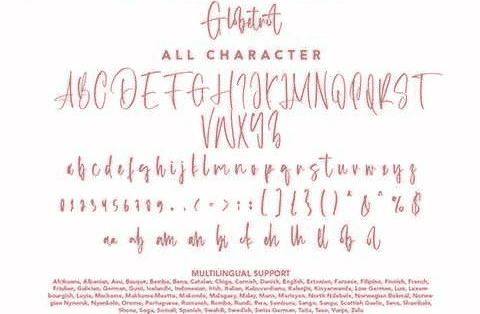 Globetrot
ALL CHARACTER
ABCDEFGHIJKLMNOPQRST
UVWXYZ
abcdefghijklmnopqrstuvwxyz
0123456789
[]{}() & % $
MULTILINGUAL SUPPORT
Afrikaans, Albanian, Asu, Basque, Bemba, Bena, Catalan, Chiga, Cornish, Danish, English, Estonian, Faroese, Filipino, Finnish, French,
Friulian, Galician, German, Gusii, Icelandic, Indonesian, Irish, Italian, Kabuverdianu, Kalenjin, Kinyarwanda, Low German, Luo, Luxem-
bourgish, Luyia, Machame, Makhuwa-Meetto, Makonde, Malagasy, Malay, Manx, Morisyen, North Ndebele, Norwegian Bokmål, Norwe-
gian Nynorsk, Nyankole, Oromo, Portuguese, Romansh, Rombo, Rundi, Rwa, Samburu, Sango, Sangu, Scottish Gaelic, Sena, Shambala,
Shona, Soga, Somali, Spanish, Swahili, Swedish, Swiss German, Taita, Teso, Vunjo, Zulu